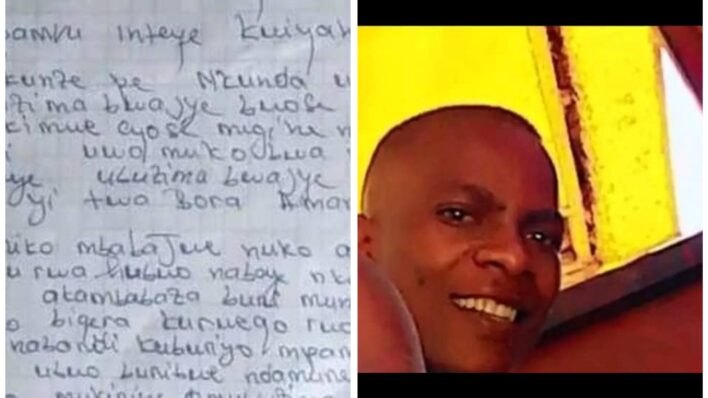 inteye kwiyah
kunze pe Nkunda u
zima bwajye bwose
kimwe cyose migihe n
i uwo mukobwa
ye ubuzima bwajye
yi twa Bora Amar
uko mbabajwe nuko a
u rwa nabaye nk
akambabaza buri mun
o bigera kurwego rwa
nabandi kuburyo mpam
ubwo buribwe ndamune